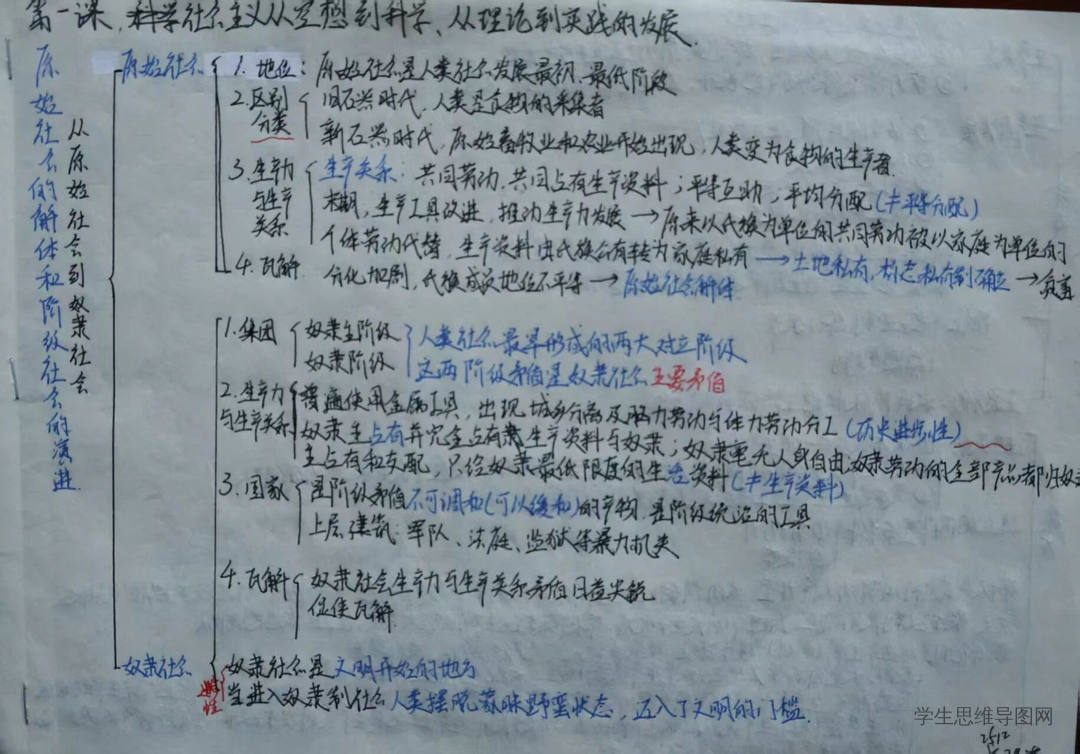 第一课、科学社会主义从空想到科学、从理论到实践的发展.
原始社会的解体和阶级社会的演进
从原始社会到奴隶社会
原始社会
1. 地位: 原始社会是人类社会发展最初、最低阶段
2. 区别 旧石器时代, 人类是食物的采集者
分类
新石器时代, 原始畜牧业和农业开始出现, 人类变为食物的生产者.
3. 生产力 生产关系: 共同劳动, 共同占有生产资料; 平等互助; 平均分配 (≠平等分配)
与生产 末期, 生产工具改进, 推动生产力发展 → 原来以氏族为单位的共同劳动被以家庭为单位的
关系 个体劳动代替, 生产资料由氏族公有转为家庭私有 → 土地私有, 标志私有制确立 → 贫富
4. 瓦解 分化加剧, 氏族成员地位不平等 → 原始社会解体
1. 集团 奴隶主阶级 人类社会最早形成的两大对立阶级
奴隶阶级 这两阶级矛盾是奴隶社会主要矛盾
2. 生产力 普遍使用金属工具, 出现城乡分离及脑力劳动与体力劳动分工 (历史进步性)
与生产关系 奴隶主占有并完全占有生产资料与奴隶; 奴隶毫无人身自由; 奴隶劳动的全部产品都归奴
主占有和支配, 只给奴隶最低限度的生活资料 (≠生产资料)
3. 国家 是阶级矛盾不可调和(可以缓和)的产物, 是阶级统治的工具
上层建筑: 军队、法庭、监狱等暴力机关
4. 瓦解 奴隶社会生产力与生产关系矛盾日益尖锐
促使瓦解
奴隶社会 奴隶社会是文明开始的地方
进步性 当进入奴隶制社会人类摆脱蒙昧野蛮状态, 迈入了文明的门槛.
学生思维导图网
2512